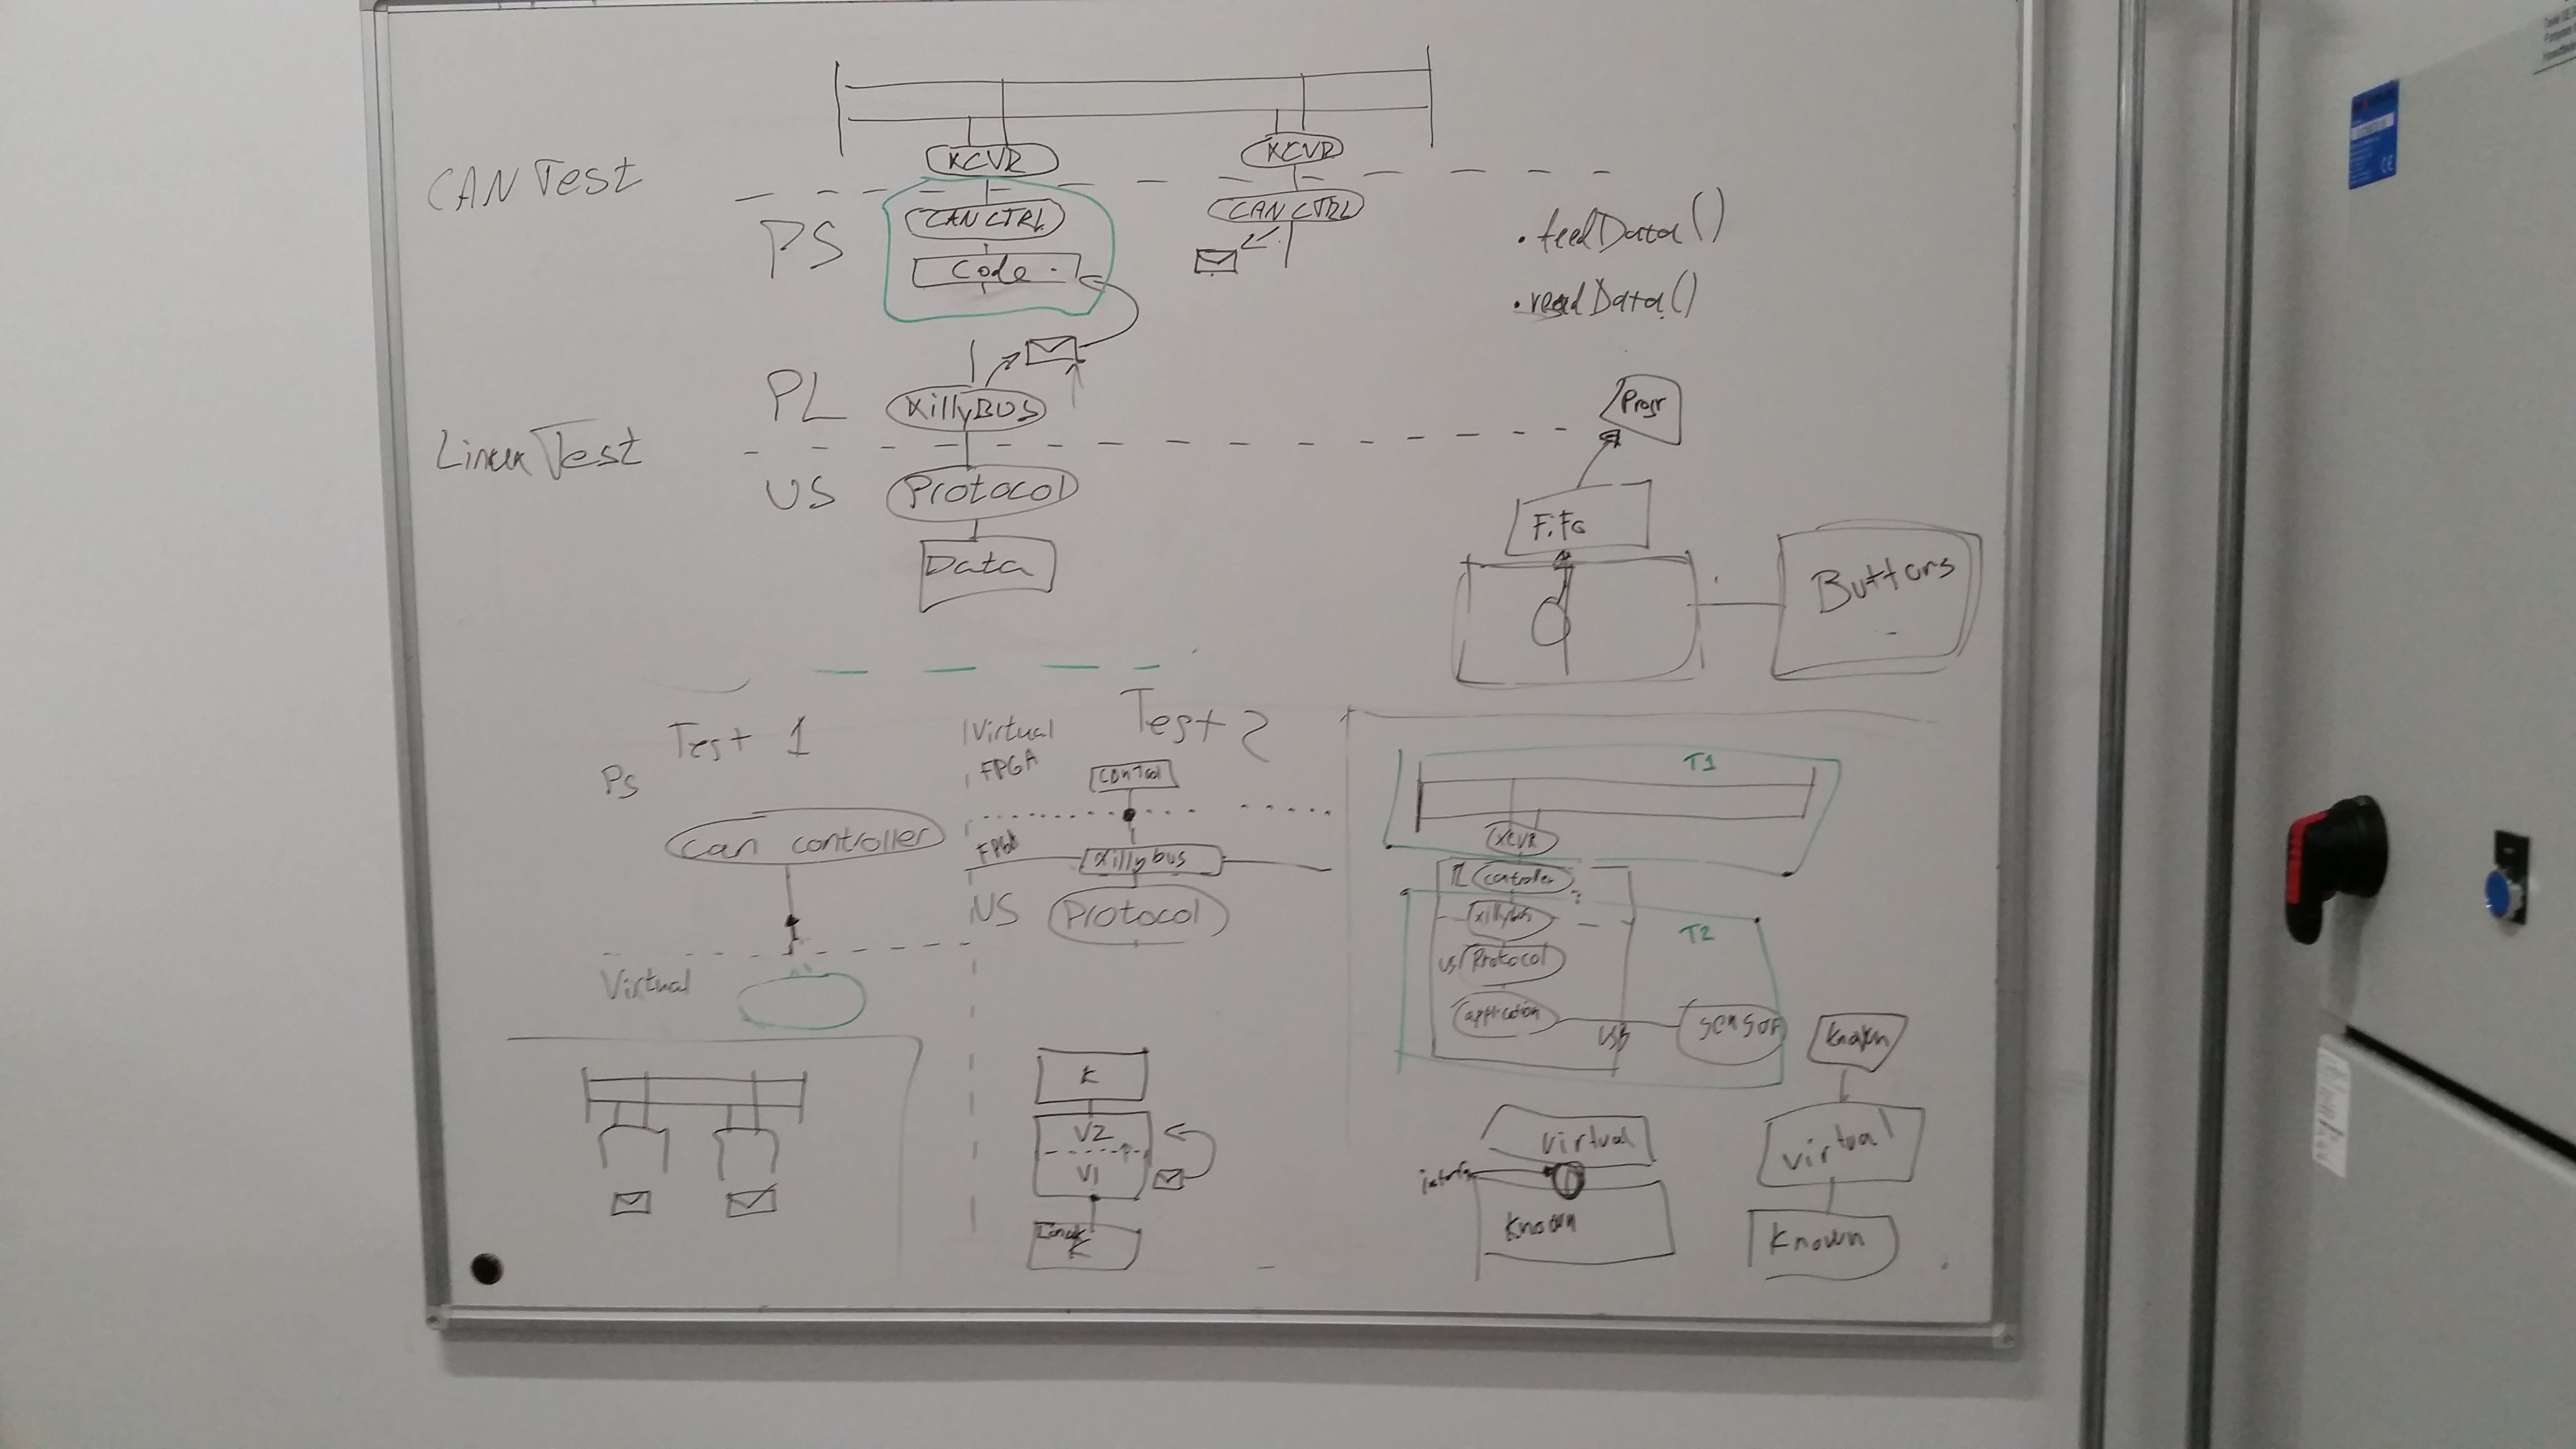 XCVR
XCVR
CAN Test
PS
CAN CTRL
CAN CTRL
Code
.feedData()
.readData()
PL
XillyBUS
Progr
Linux Test
US
Protocol
FiFo
Data
Buttons
Test 1
Virtual
FPGA
Test 2
Ps
Contool
T1
can controller
FPGA
Xillybus
XCVR
US
Protocol
controller
xillybus
T2
us
Protocol
Virtual
application
USB
sensor
Known
K
V2
V1
Linux
K
virtual
interfa
Known
virtual
Known